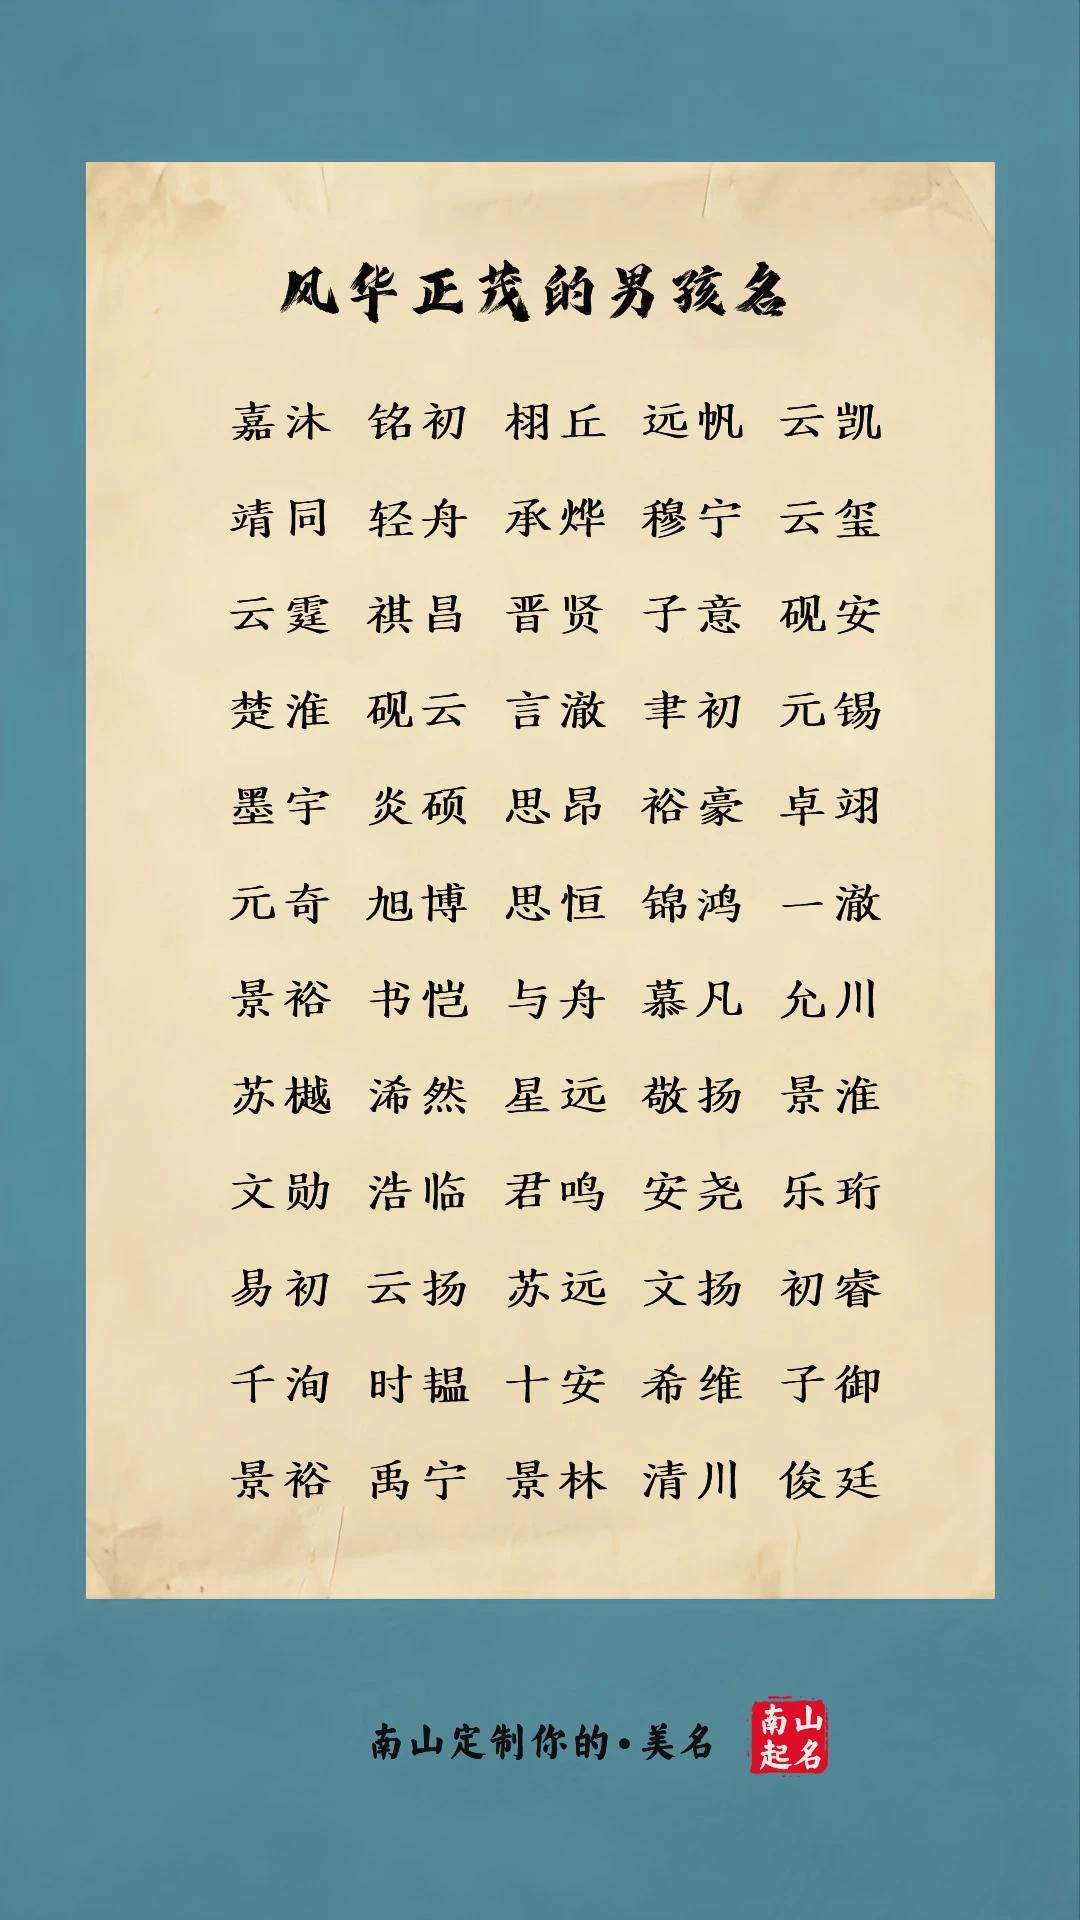 风华正茂的男孩名
嘉沐 铭初 栩丘 远帆 云凯
靖同 轻舟 承烨 穆宁 云玺
云霆 祺昌 晋贤 子意 砚安
楚淮 砚云 言澈 聿初 元锡
墨宇 炎硕 思昂 裕豪 卓翊
元奇 旭博 思恒 锦鸿 一澈
景裕 书恺 与舟 慕凡 允川
苏樾 浠然 星远 敬扬 景淮
文勋 浩临 君鸣 安尧 乐珩
易初 云扬 苏远 文扬 初睿
千洵 时韫 十安 希维 子御
景裕 禹宁 景林 清川 俊廷
南山定制你的·美名
南山
起名